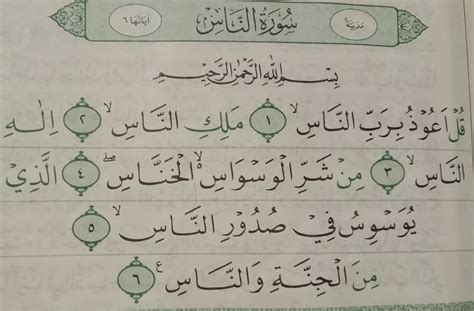 مدنية سورة الناس آياتها ٦
بِسْمِ اللهِ الرَّحْمٰنِ الرَّحِيْمِ
قُلْ اَعُوْذُ بِرَبِّ النَّاسِ ۙ ١ مَلِكِ النَّاسِ ۙ ٢ اِلٰهِ
النَّاسِ ۙ ٣ مِنْ شَرِّ الْوَسْوَاسِ ۙ الْخَنَّاسِ ۖ ٤ الَّذِيْ
يُوَسْوِسُ فِيْ صُدُوْرِ النَّاسِ ۙ ٥
مِنَ الْجِنَّةِ وَالنَّاسِ ࣖ ٦